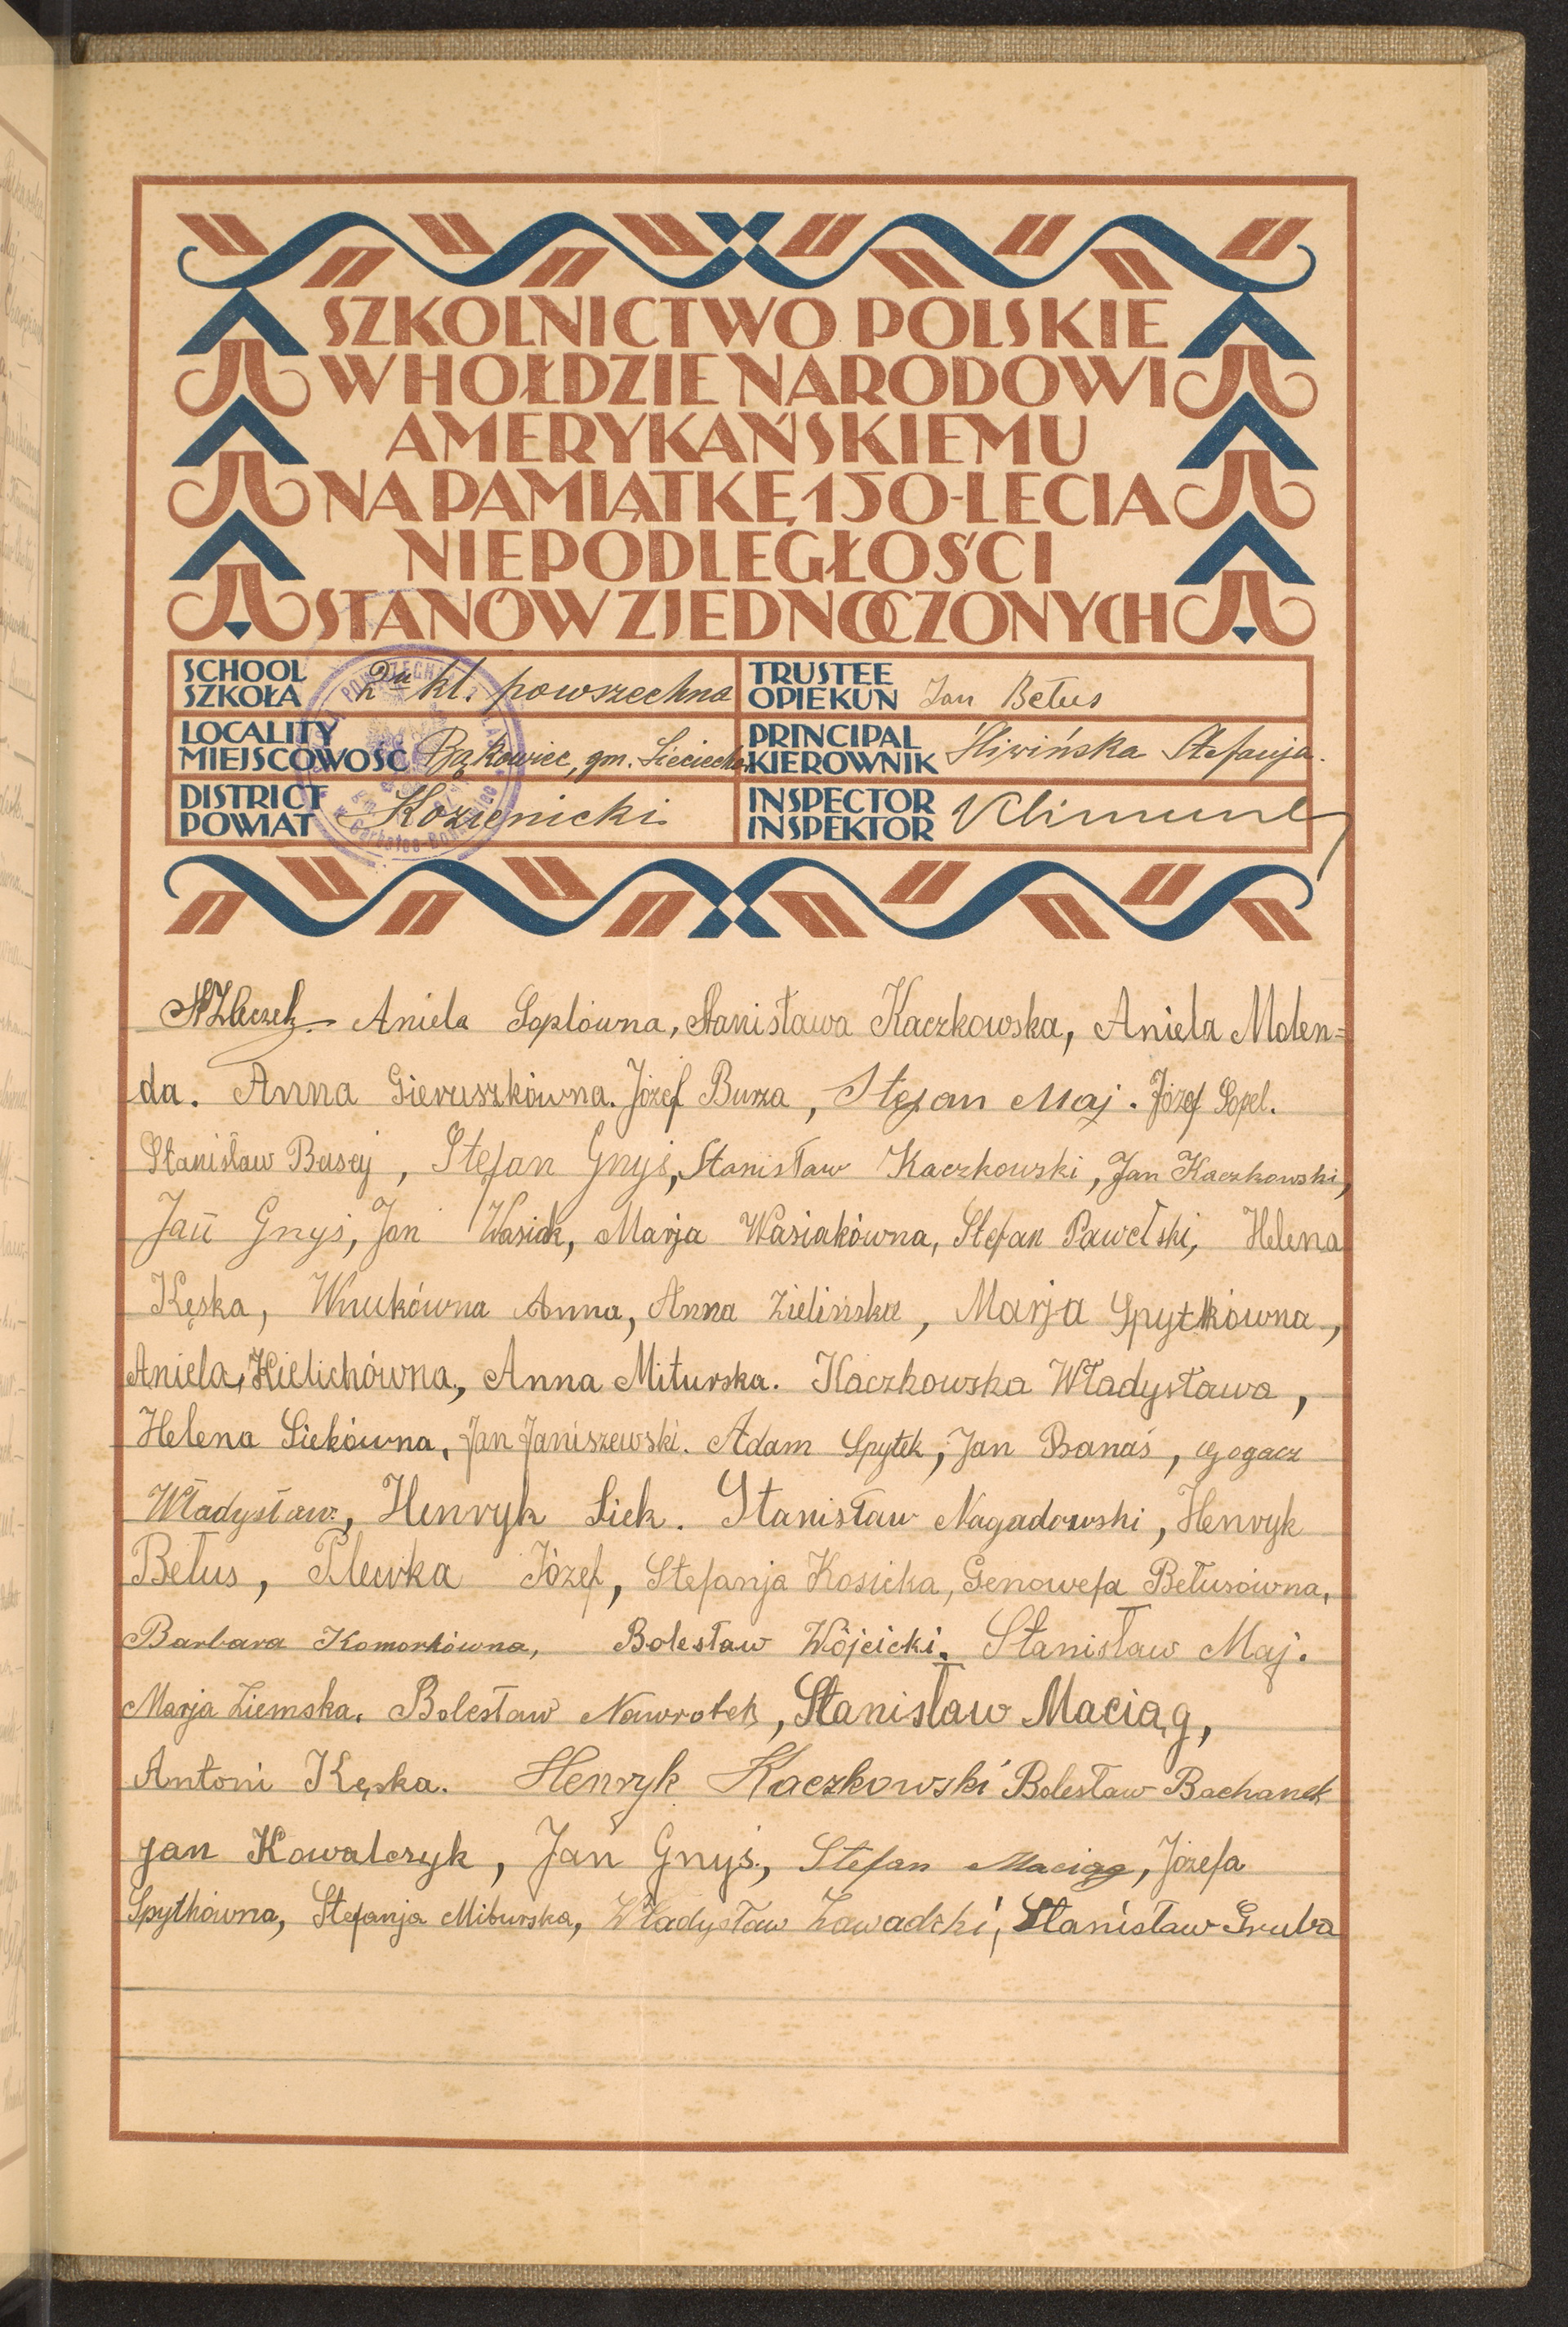 SZKOLNICTWO POLSKIE
W HOŁDZIE NARODOWI
AMERYKAŃSKIEMU
NA PAMIĄTKĘ 150-LECIA
NIEPODLEGŁOŚCI
STANÓW ZJEDNOCZONYCH
SCHOOL
SZKOŁA 2u kl. powszechna
TRUSTEE
OPIEKUN Jan Bełus
LOCALITY
MIEJSCOWOŚĆ Bąkowiec, gm. Sieciechów
PRINCIPAL
KIEROWNIK Śliwińska Stefanja.
DISTRICT
POWIAT Kozienicki
INSPECTOR
INSPEKTOR
Aniela Soplówna, Stanisława Kaczkowska, Aniela Molen=
da. Anna Gieruszkówna. Józef Burza, Stefan Maj. Józef Sopel.
Stanisław Stefan Gnyś, Stanisław Kaczkowski, Jan Kaczkowski,
Jan Gnyś, Jan Wasiak, Marja Wasiakówna, Stefan Pawelski, Helena
Kęska, Wnukówna Anna, Anna Zielińska, Marja Spytkówna,
Aniela Kielichówna, Anna Miturska. Kaczkowska Władysława,
Helena Siekówna, Jan Janiszewski. Adam Spytek, Jan Banaś, Gogacz
Władysław, Henryk Siek. Stanisław Nagadowski, Henryk
Bełus, Plewka Józef, Stefanja Kosicka, Genowefa Bełusówna,
Barbara Komorkówna, Bolesław Wójcicki. Stanisław Maj.
Marja Ziemska. Bolesław Nawrotek, Stanisław Maciąg,
Antoni Kęska. Henryk Kaczkowski Bolesław Bachanek
Jan Kowalczyk, Jan Gnyś, Stefan Maciąg, Józefa
Spytkówna, Stefanja Miturska, Władysław Zawadzki, Stanisław Gruba